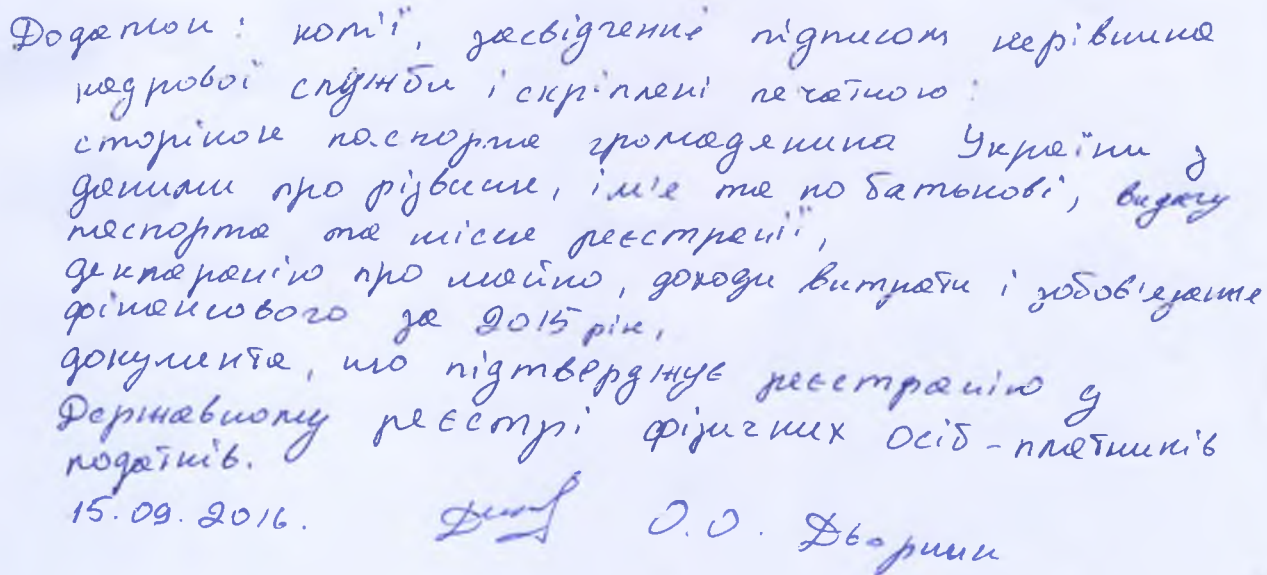 Додаток: копії, засвідченні підписом керівника
кадрової служби і скріплені печаткою:
сторінок паспорта громадянина України з
даними про різвище, ім'я та по батькові, видачу
паспорта та місце реєстрації,
декларацію про майно, доходи витрати і зобов'язання
фінансового за 2015 рік,
документа, що підтверджує реєстрацію у
Державному реєстрі фізичних осіб - платників
податків.
15.09.2016. О.О.